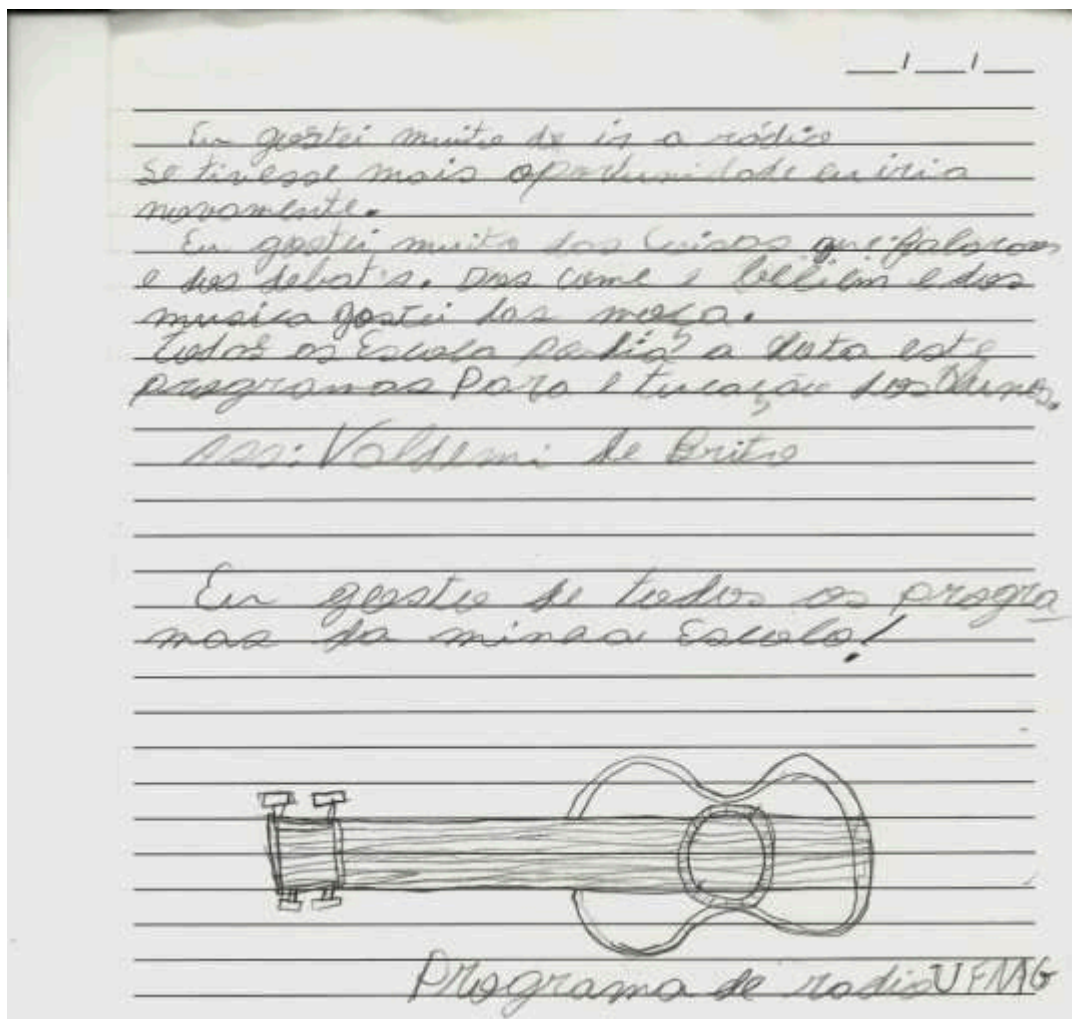 Eu gostei muito de ir a rádio
se tivesse mais oportunidade eu iria
novamente.
Eu gostei muito das que falaram
e dos debates. Das come e bebem e das
musica gostei das moça.
todos os Escola a este
programas Para dos alunos.
ass: Valdemi de Brito
Eu gosto de todos os progra
mas da minha Escola!
Programa de radio UFMG